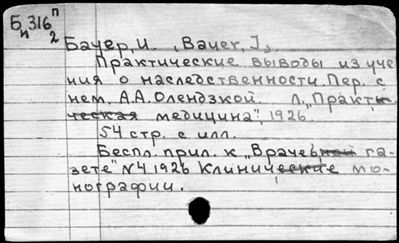 Би 316 п/2
Бауер, И. (Bauer, J.)
Практические выводы из уче
ния о наследственности. Пер. с
нем. А.А. Олендзкой. Л., "Практи
ческая медицина", 1926.
54 стр. с илл.
Беспл. прил. к "Врачебной га-
зете" №4 1926 Клинические мо-
нографии.